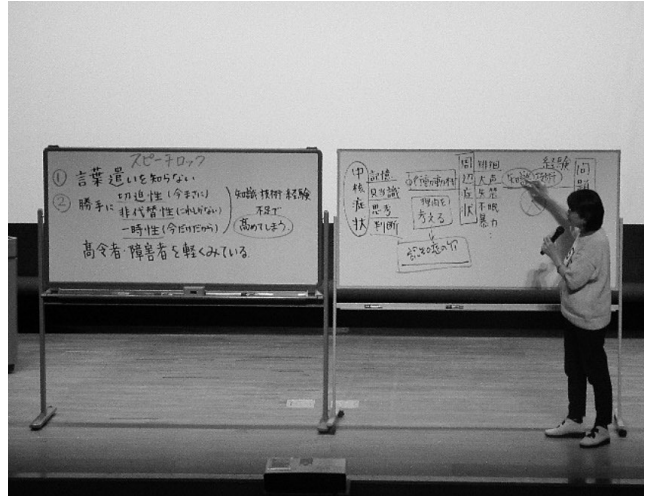 スピーチロック
① 言葉遣いを知らない
② 勝手に
切迫性(今まさに)
非代替性(これしかない)
一時性(今だけだから)
知識・技術・経験
不足で
高めてしまう
高令者・障害者を軽くみている
中核症状
記憶
見当識
思考
判断
理由を
考える
周辺症状
徘徊
大声
失禁
不眠
暴力
経験
知識
技術